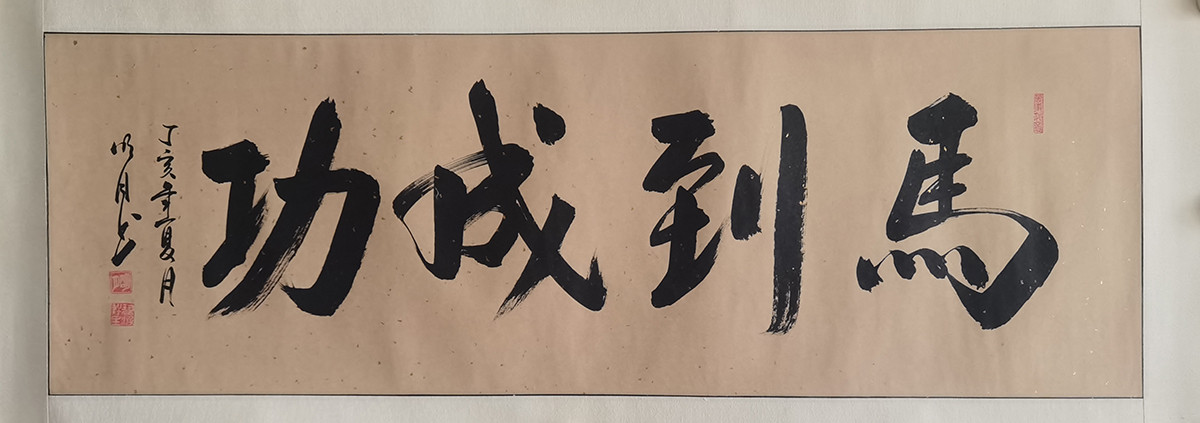 馬到成功
丁亥年夏月
明月书